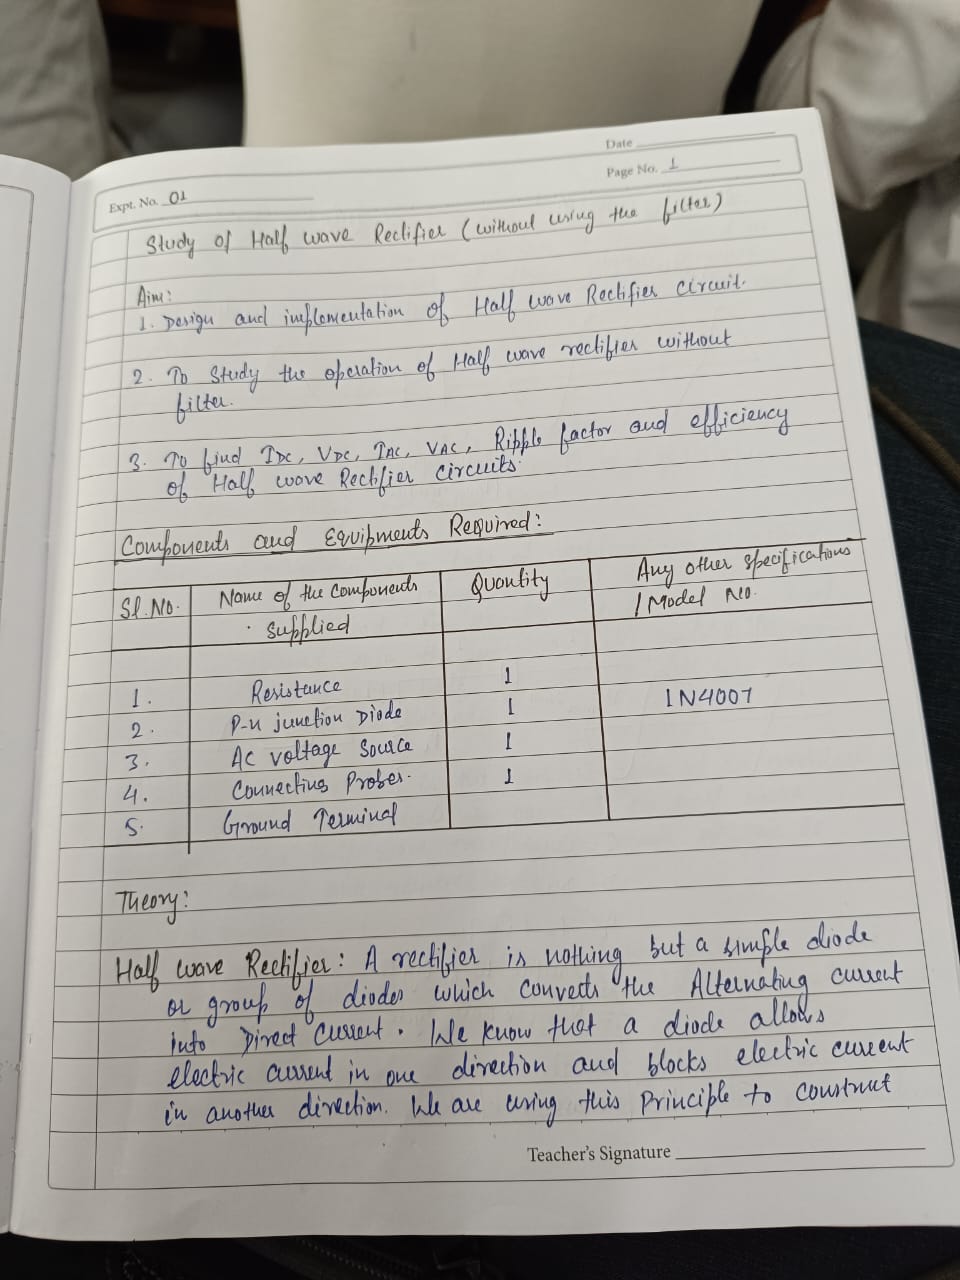 Date
Page No. 1
Expt. No. 01
Study of Half wave Rectifier (without using the filter)
Aim:
1. Design and implementation of Half wave Rectifier circuit.
2. To Study the operation of Half wave rectifier without
filter.
3. To find IDC, VDC, IAC, VAC, Ripple factor and efficiency
of Half wave Rectifier circuits.
Components and Equipments Required:
Sl. No. Name of the Components Quantity Any other specifications
supplied / Model No.
1. Resistance 1
2. P-n junction Diode 1 1N4007
3. AC voltage Source 1
4. Connecting Probes. 1
5. Ground Terminal
Theory:
Half wave Rectifier: A rectifier is nothing but a simple diode
or group of diodes which converts the Alternating current
into Direct Current. We know that a diode allows
electric current in one direction and blocks electric current
in another direction. We are using this Principle to construct
Teacher's Signature